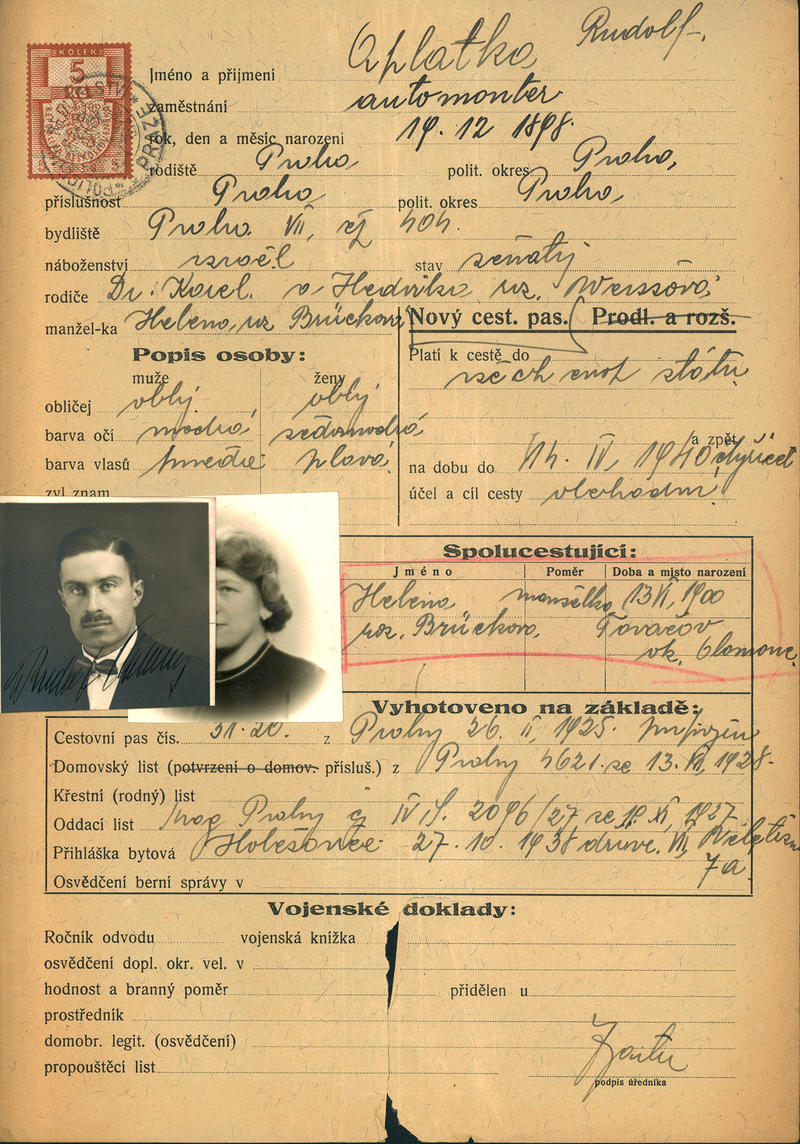 KOLEK
5
Jméno a příjmení Oplatka Rudolf.
zaměstnání automonter
rok, den a měsíc narození 19. 12 1898.
rodiště Praha polit. okres Praha,
příslušnost Praha polit. okres Praha,
bydliště Praha VII, čj 404.
náboženství israel. stav ženatý
rodiče Dr. Karel. a Hedvika roz. Weissová
manžel-ka Helena, roz Brücková
Nový cest. pas. Prodl. a rozš.
Popis osoby:
Platí k cestě do
všech evr. států
muže ženy
obličej oblý oblý
barva očí modrá šedomodrá
a zpět
barva vlasů hnědé plavá
na dobu do 14. IV, 1940
zvl znam.
účel a cíl cesty obchodní
Spolucestující:
Jméno Poměr Doba a místo narození
Helena manželka 13 VI, 1900
roz. Brücková, Tovačov
ok. Olomouc
Vyhotoveno na základě:
Cestovní pas čís. z Prahy 26. II, 1925.
Domovský list (potvrzení o domov. přísluš.) z Prahy 4621. ze 13. 1928.
Křestní (rodný) list
Oddací list Prahy čj IV 2096/27 ze XI, 1927.
Přihláška bytová Holešovice 27. 10. 1938 VII,
7 a.
Osvědčení berní správy v
Vojenské doklady:
Ročník odvodu vojenská knížka
osvědčení dopl. okr. vel. v
hodnost a branný poměr přidělen u
prostředník
domobr. legit. (osvědčení)
propouštěcí list
podpis úředníka